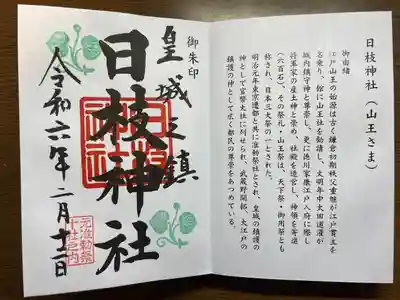 日枝神社（山王さま）
御由緒
江戸山王の始源は古く鎌倉初期秩父重継が江戸貫主を
名乗り、館に山王社を勧請し、文明年中太田道灌が
城内鎮守神と尊崇し、更に徳川家康江戸入府に際し
将軍家の産土神と崇め、社殿を造営し、神領を寄進
（六百石）、その祭礼・山王祭は、天下祭・御用祭とも
称され、日本三大祭の一とされた。
明治元年東京遷都と共に准勅祭社とされ、皇城の鎮護の
神として官幣大社に列せられ、武蔵野開拓、大江戸の
鎮護の神として広く都民の尊崇をあつめている。
御朱印
皇城之鎮
日枝神社
令和六年二月十二日
元准勅祭
十社之内